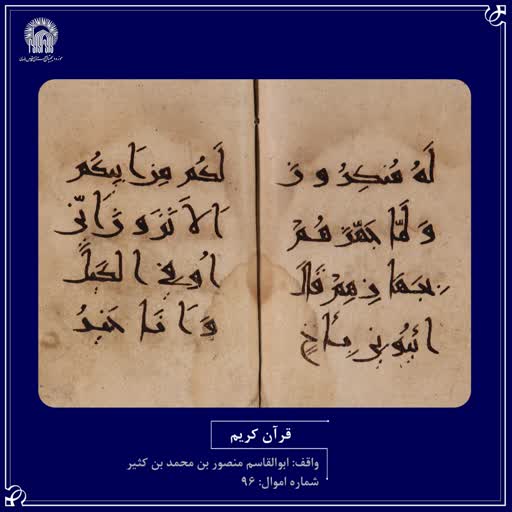 لَهُ مُنكِرُونَ
وَلَمَّا جَهَّزَهُمْ
بِجَهَازِهِمْ قَالَ
ائتُونِي بِأَخٍ
لَكُم مِنْ ابِيكُم
الَا تَرَوْنَ انِّي
اُوفِي الكَيْلَ
وَانَا خَيرُ
قرآن کریم
واقف: ابوالقاسم منصور بن محمد بن کثیر
شماره اموال: ۹۶